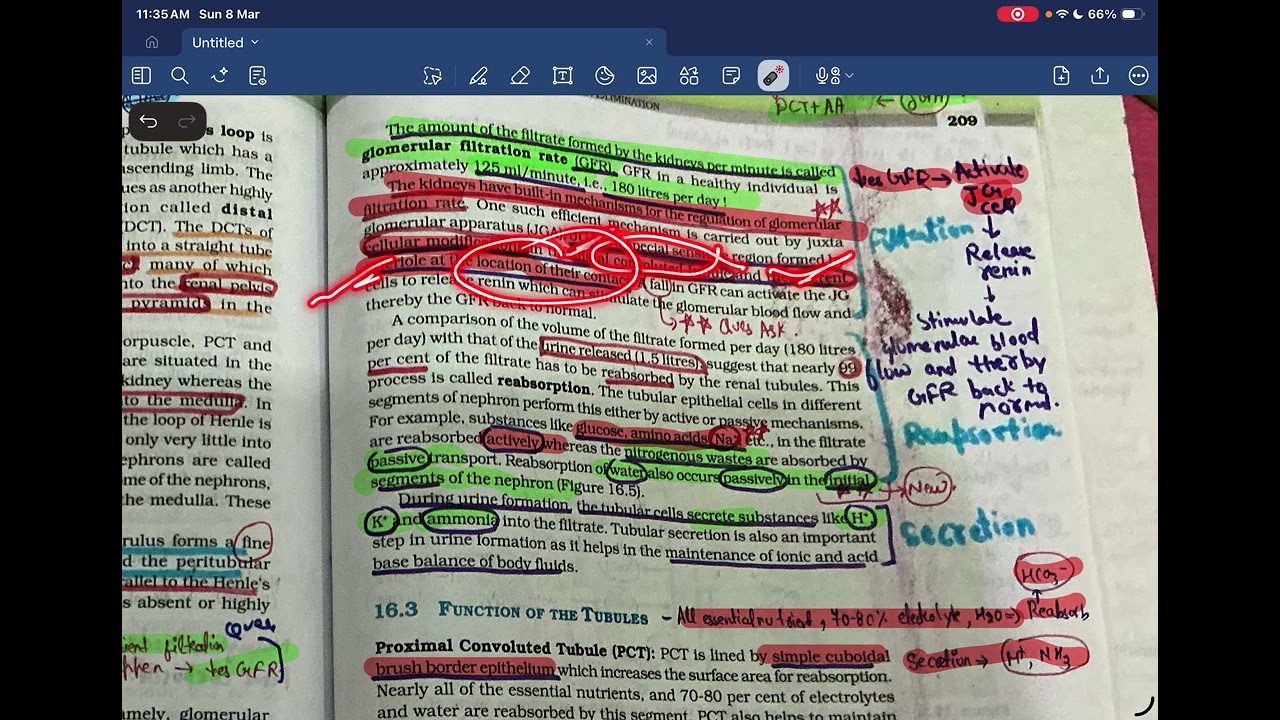 11:35 AM Sun 8 Mar
66%
Untitled
s loop is
tubule which has a
scending limb. The
ues as another highly
ion called distal
DCT). The DCTs of
into a straight tube
many of which
nto the renal pelvis
pyramids in the
orpuscle, PCT and
are situated in the
kidney whereas the
to the medulla. In
the loop of Henle is
only very little into
nephrons are called
me of the nephrons,
the medulla. These
rulus forms a fine
d the peritubular
allel to the Henle's
s absent or highly
Ques
filtration
→ ↓es GFR
mely, glomerular
ELIMINATION
PCT+AA ←
209
The amount of the filtrate formed by the kidneys per minute is called
glomerular filtration rate (GFR). GFR in a healthy individual is
approximately 125 ml/minute, i.e., 180 litres per day !
The kidneys have built-in mechanisms for the regulation of glomerular
filtration rate. One such efficient mechanism is carried out by juxta
glomerular apparatus (JGA). special sensi region formed b
cellular modifications in the
at the location of their contact fall in GFR can activate the JG
cells to release renin which can stimulate the glomerular blood flow and
thereby the GFR back to normal.
Ques Ask.
A comparison of the volume of the filtrate formed per day (180 litres
per day) with that of the urine released (1.5 litres), suggest that nearly 99
per cent of the filtrate has to be reabsorbed by the renal tubules. This
process is called reabsorption. The tubular epithelial cells in different
segments of nephron perform this either by active or passive mechanisms.
For example, substances like glucose, amino acids, Na+, etc., in the filtrate
are reabsorbed actively whereas the nitrogenous wastes are absorbed by
passive transport. Reabsorption of water also occurs passively in the initial
segments of the nephron (Figure 16.5).
During urine formation, the tubular cells secrete substances like H+,
K+ and ammonia into the filtrate. Tubular secretion is also an important
step in urine formation as it helps in the maintenance of ionic and acid
base balance of body fluids.
16.3 FUNCTION OF THE TUBULES - All essential nutrient, 70-80% electrolyte, H2O ⇒ Reabsorb
Proximal Convoluted Tubule (PCT): PCT is lined by simple cuboidal
brush border epithelium which increases the surface area for reabsorption.
Nearly all of the essential nutrients, and 70-80 per cent of electrolytes
and water are reabsorbed by this segment. PCT also helps to maintain
↓es GFR → Activate
JG
cell
↓
Filtration
Release
renin
↓
Stimulate
glomerular blood
flow and therby
GFR back to
normal.
Reabsortion
New
Secretion
HCO3-
Secretion → H+, NH3